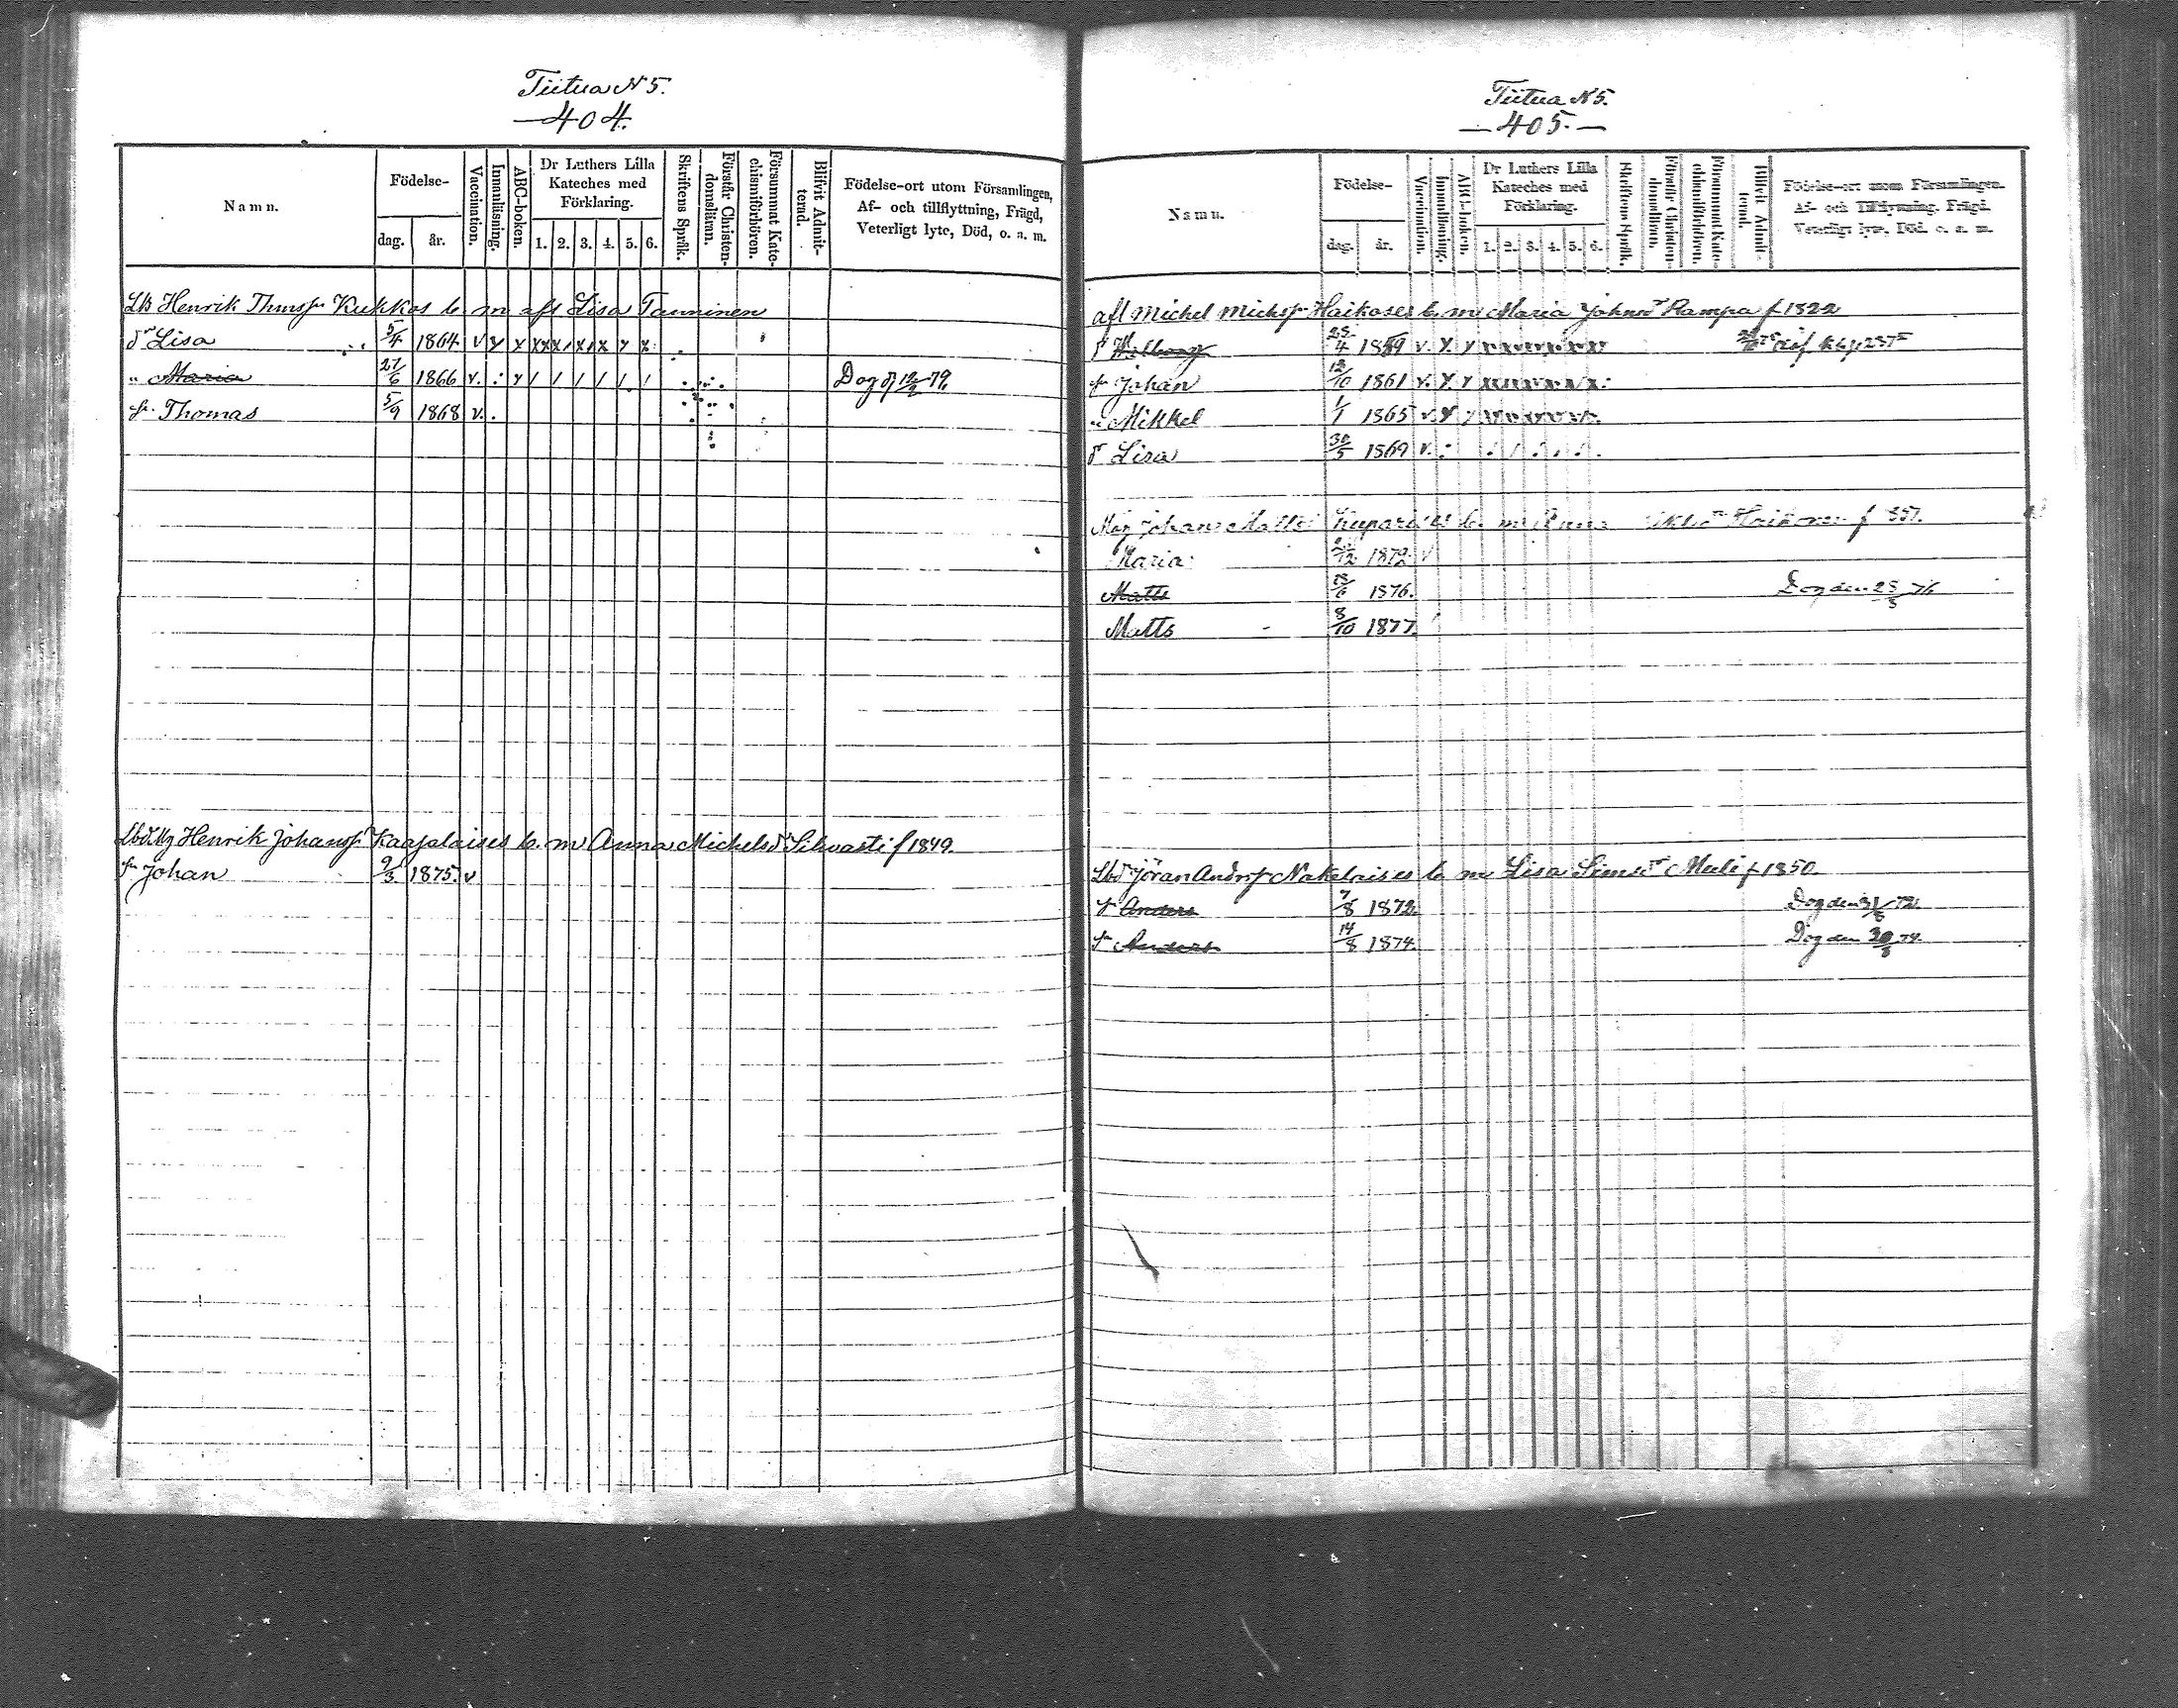 Tiitua N 5.
404.
Namn.
Födelse-
dag.
år.
Vaccination.
Innanläsning.
ABC-boken.
Dr Luthers Lilla
Kateches med
Förklaring.
1. 2. 3. 4. 5. 6.
Skriftens Språk.
Förstår Christen-
domsläran.
Försummat Kate-
chismiförhören.
Blifvit Admit-
terad.
Födelse-ort utom Församlingen,
Af- och tillflyttning, Frägd,
Veterligt lyte, Död, o. a. m.
Henrik Thmsn Kukkos b. m afl Lisa Tanninen
dr Lisa 5/4 1864 v y x x x x x x x x
" Maria 27/6 1866 v. : y / / / / / / Dog d 12/2 79.
sn Thomas 5/9 1868 v. .
Henrik Johanssn Kaapalaises b. m Anna Michelsdr Sihvasti f 1849.
sn Johan 9/3 1875. v
Tiitua N 5.
405.
Namn.
Födelse-
dag.
år.
Vaccination.
Innanläsning.
ABC-boken.
Dr Luthers Lilla
Kateches med
Förklaring.
1. 2. 3. 4. 5. 6.
Skriftens Språk.
Förstår Christen-
domsläran.
Försummat Kate-
chismiförhören.
Blifvit Admit-
terad.
Födelse-ort utom Församlingen,
Af- och tillflyttning, Frägd,
Veterligt lyte, Död, o. a. m.
afl Michel Michsn Haikoses b. m Maria Johnsdr Rampa f 1822
/4 1859 v. y. y
sn Johan /10 1861 v. y y
" Mikkel 1/1 1865 v y y
dr Lisa 30/5 1869 v. :
Johan Matts Kuparises b. m Anna Haikonen f
Maria /12 1872 v
Matts /6 1876. Dog den 25/8 76
Matts 8/10 1877.
Lbd Jöran Andrsn Nakelaises b. m Lisa Simsdr Muli f 1850.
sn Anders 7/8 1872. Dog den 31/8 72.
sn Anders 14/8 1874. Dog den 30/8 74.